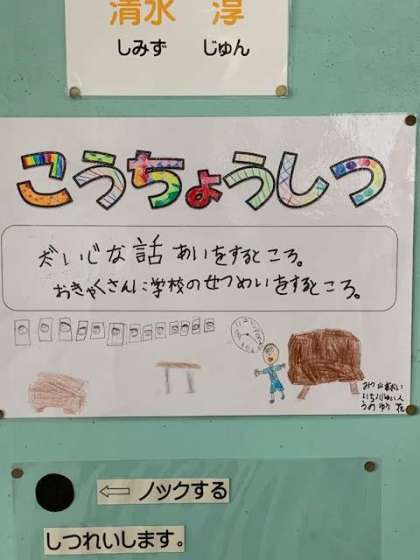 清水 淳
しみず じゅん
こうちょうしつ
だいじな話あいをするところ。
おきゃくさんに学校のせつめいをするところ。
⇦ ノックする
しつれいします。